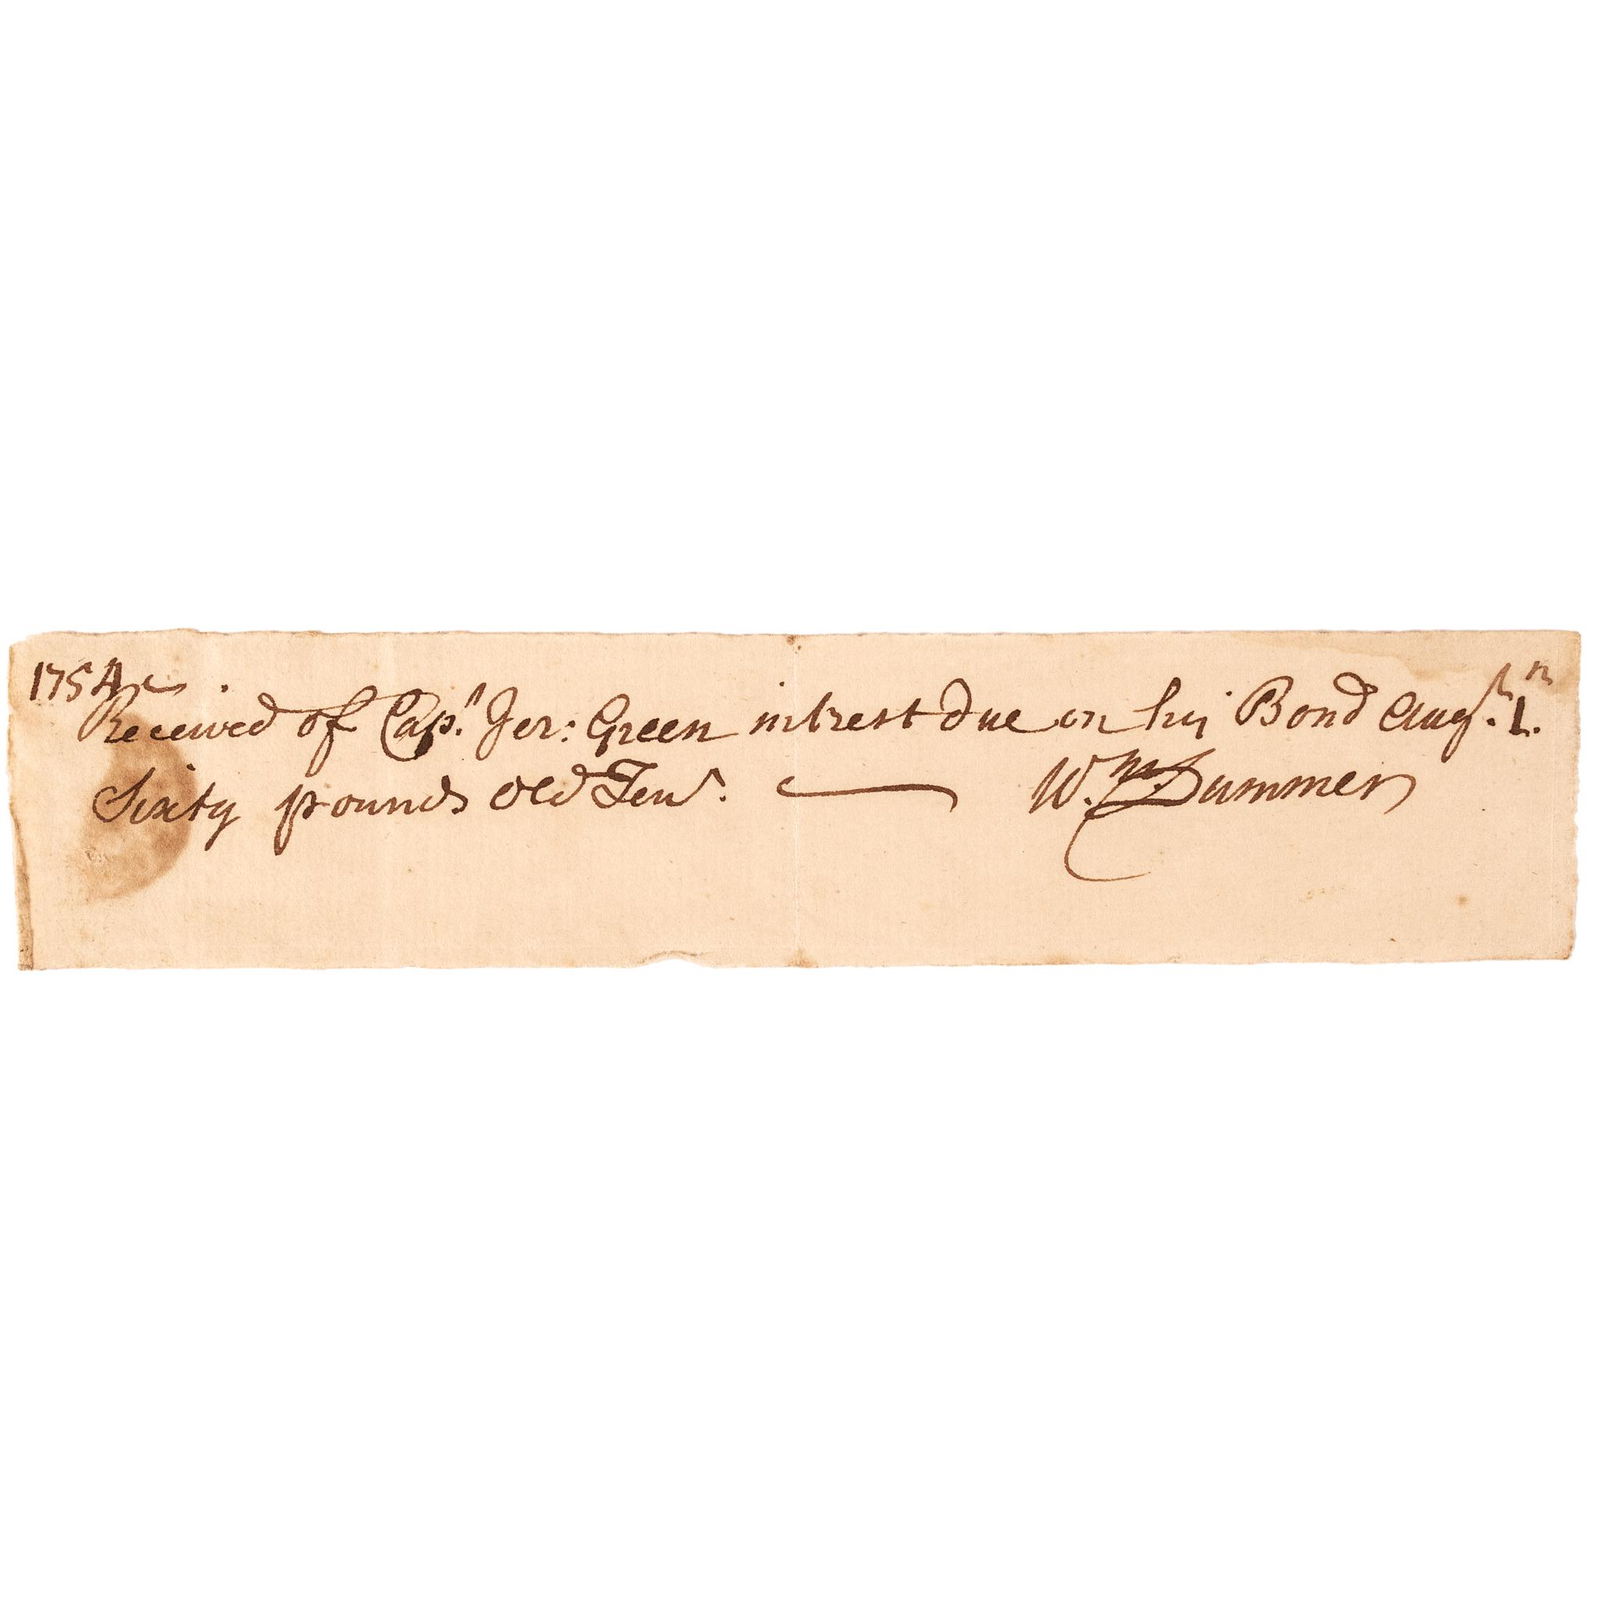 1754
Received of Capt. Jer: Green intrest due on his Bond Augst. 1.
Sixty pounds Old Tenr. W.m Dummer